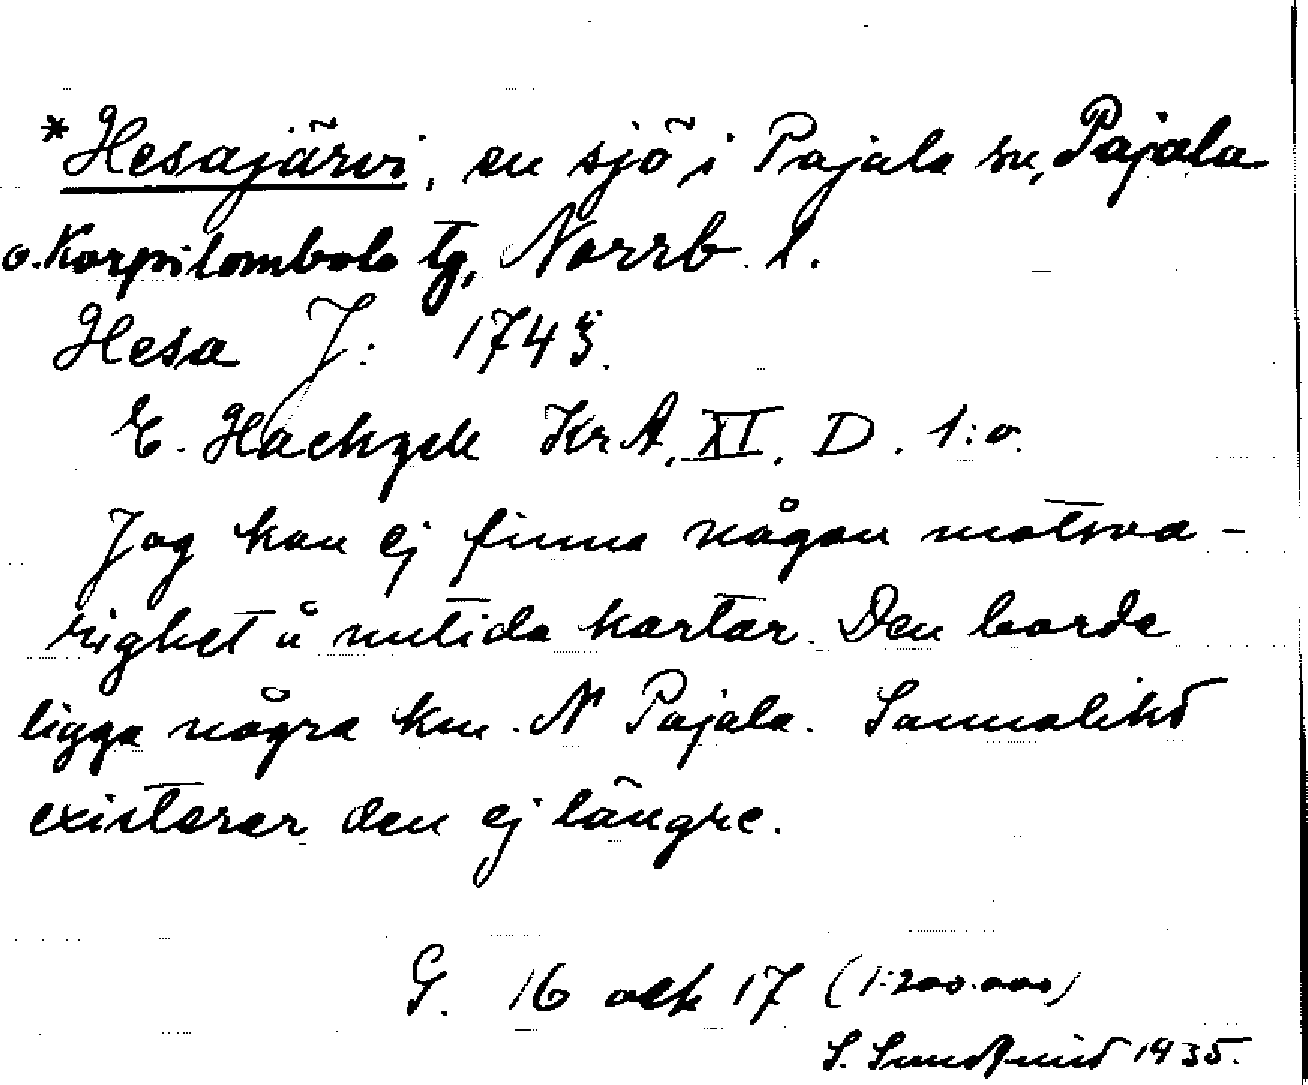 *Hesajärvi, en sjö i Pajala sn, Pajala
o. Korpilombolo tg, Norrb. l.
Hesa J: 1745.
E. Hackzell KrA. XI. D. 1:o.
Jag kan ej finna någon motsva-
righet å nutida kartor. Den borde
ligga några km. N Pajala. Sannolikt
existerar den ej längre.
G. 16 och 17 (1:200.000)
S. 1935.